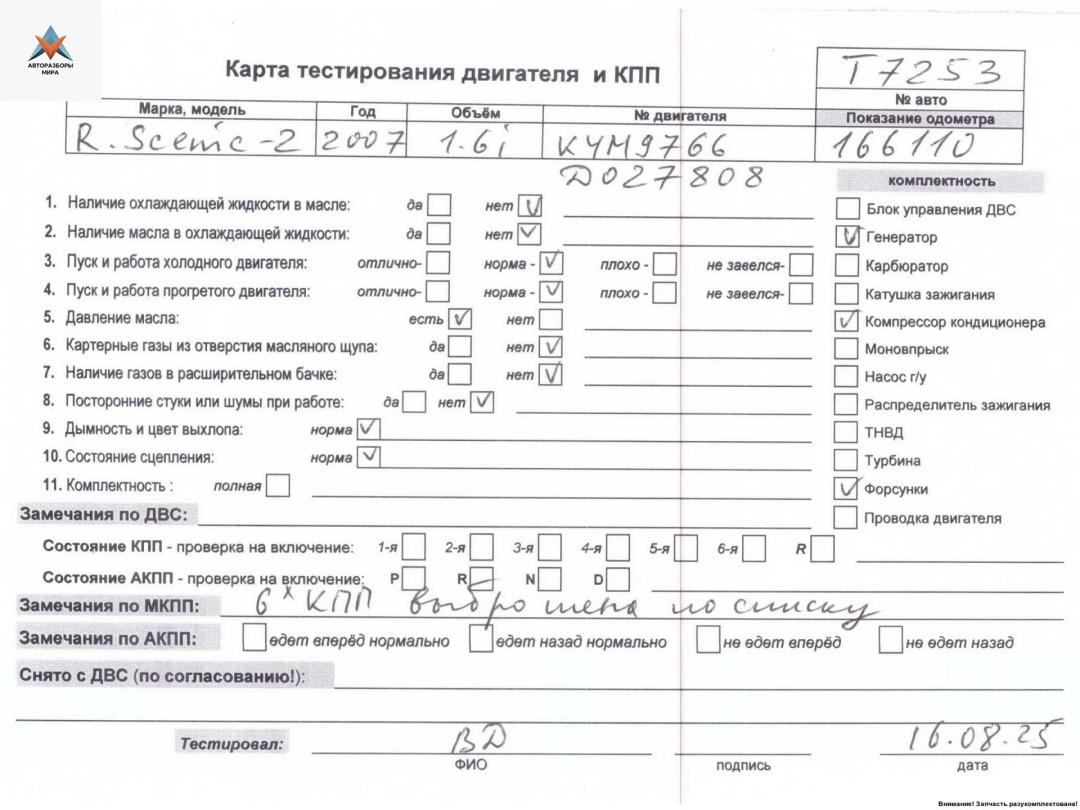 АВТОРАЗБОРЫ
МИРА
Карта тестирования двигателя и КПП
T7253
№ авто
Марка, модель Год Объём № двигателя Показание одометра
R. Scenic-2 2007 1.6i K4M9766 166110
D027808
комплектность
1. Наличие охлаждающей жидкости в масле: да нет V
Блок управления ДВС
2. Наличие масла в охлаждающей жидкости: да нет V
V Генератор
3. Пуск и работа холодного двигателя: отлично- норма - V плохо - не завелся-
Карбюратор
4. Пуск и работа прогретого двигателя: отлично- норма - V плохо - не завелся-
Катушка зажигания
5. Давление масла: есть V нет
V Компрессор кондиционера
6. Картерные газы из отверстия масляного щупа: да нет V
Моновпрыск
7. Наличие газов в расширительном бачке: да нет V
Насос г/у
8. Посторонние стуки или шумы при работе: да нет V
Распределитель зажигания
9. Дымность и цвет выхлопа: норма V
ТНВД
10. Состояние сцепления: норма V
Турбина
11. Комплектность : полная
V Форсунки
Замечания по ДВС:
Проводка двигателя
Состояние КПП - проверка на включение: 1-я 2-я 3-я 4-я 5-я 6-я R
Состояние АКПП - проверка на включение: P R N D
Замечания по МКПП: 6х КПП выброшена по списку
Замечания по АКПП: едет вперёд нормально едет назад нормально не едет вперёд не едет назад
Снято с ДВС (по согласованию!):
Тестировал: ВД 16.08.25
ФИО подпись дата
Внимание! Запчасть разукомплектована!